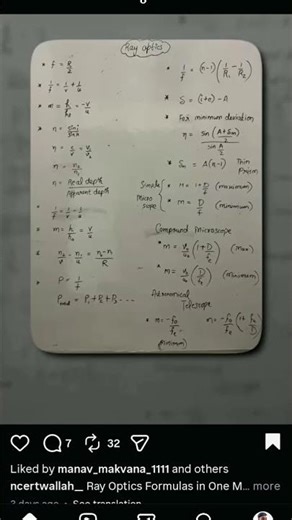 Ray optics
* f = R/2
* 1/f = 1/v + 1/u
* m = hi/ho = -v/u
* n = sini/sinr
n = c/v = v1/v2
n = n2/n1
n = Real depth/Apparent depth
* 1/f = 1/v - 1/u
* m = hi/ho = v/u
* n2/v - n1/u = n2-n1/R
* P = 1/f
= P1 + P2 + P3 ...
* 1/f = (n-1) (1/R1 - 1/R2)
* S = (i+e) - A
* For minimum deviation
n = sin (A+Sm/2) / sin A/2
* Sm = A(n-1) Thin Prism
Simple Microscope
* M = 1+D/f (maximum)
* m = D/f (minimum)
Compound Microscope
* m = (1+D/fe) (Max)
* m = (D/fe) (minimum)
Astronomical Telescope
* m = -fo/fe (minimum)
m = -fo/fe (1+ fe/D)
7
32
Liked by manav_makvana_1111 and others
ncertwallah_ Ray Optics Formulas in One M... more
3 days ago · See translation